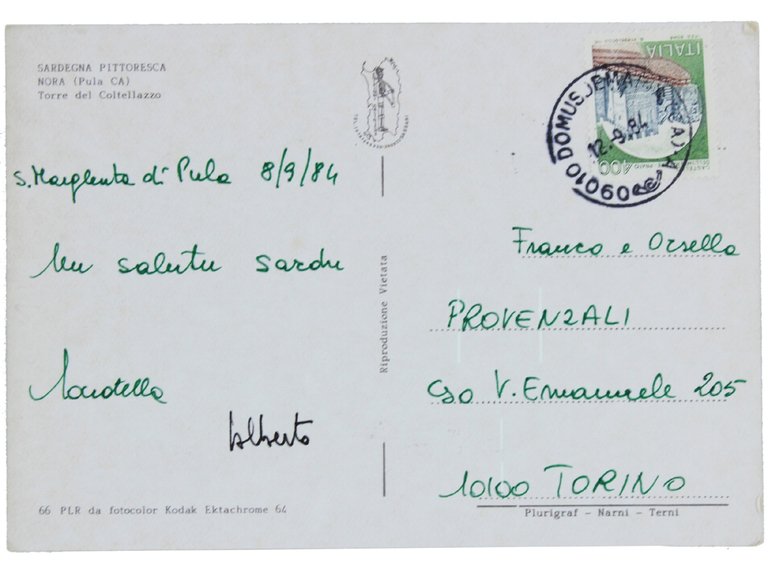 SARDEGNA PITTORESCA
NORA (Pula CA)
Torre del Coltellazzo
S. Margherita di Pula 8/9/84
saluti sardi
Alberto
66 PLR da fotocolor Kodak Ektachrome 64
Riproduzione Vietata
ITALIA
400
09010 DOMUS DE MARIA (CA) A
12.9.84
Franco e Orsella
PROVENZALI
Cso V. Emanuele 205
10100 TORINO
Plurigraf - Narni - Terni